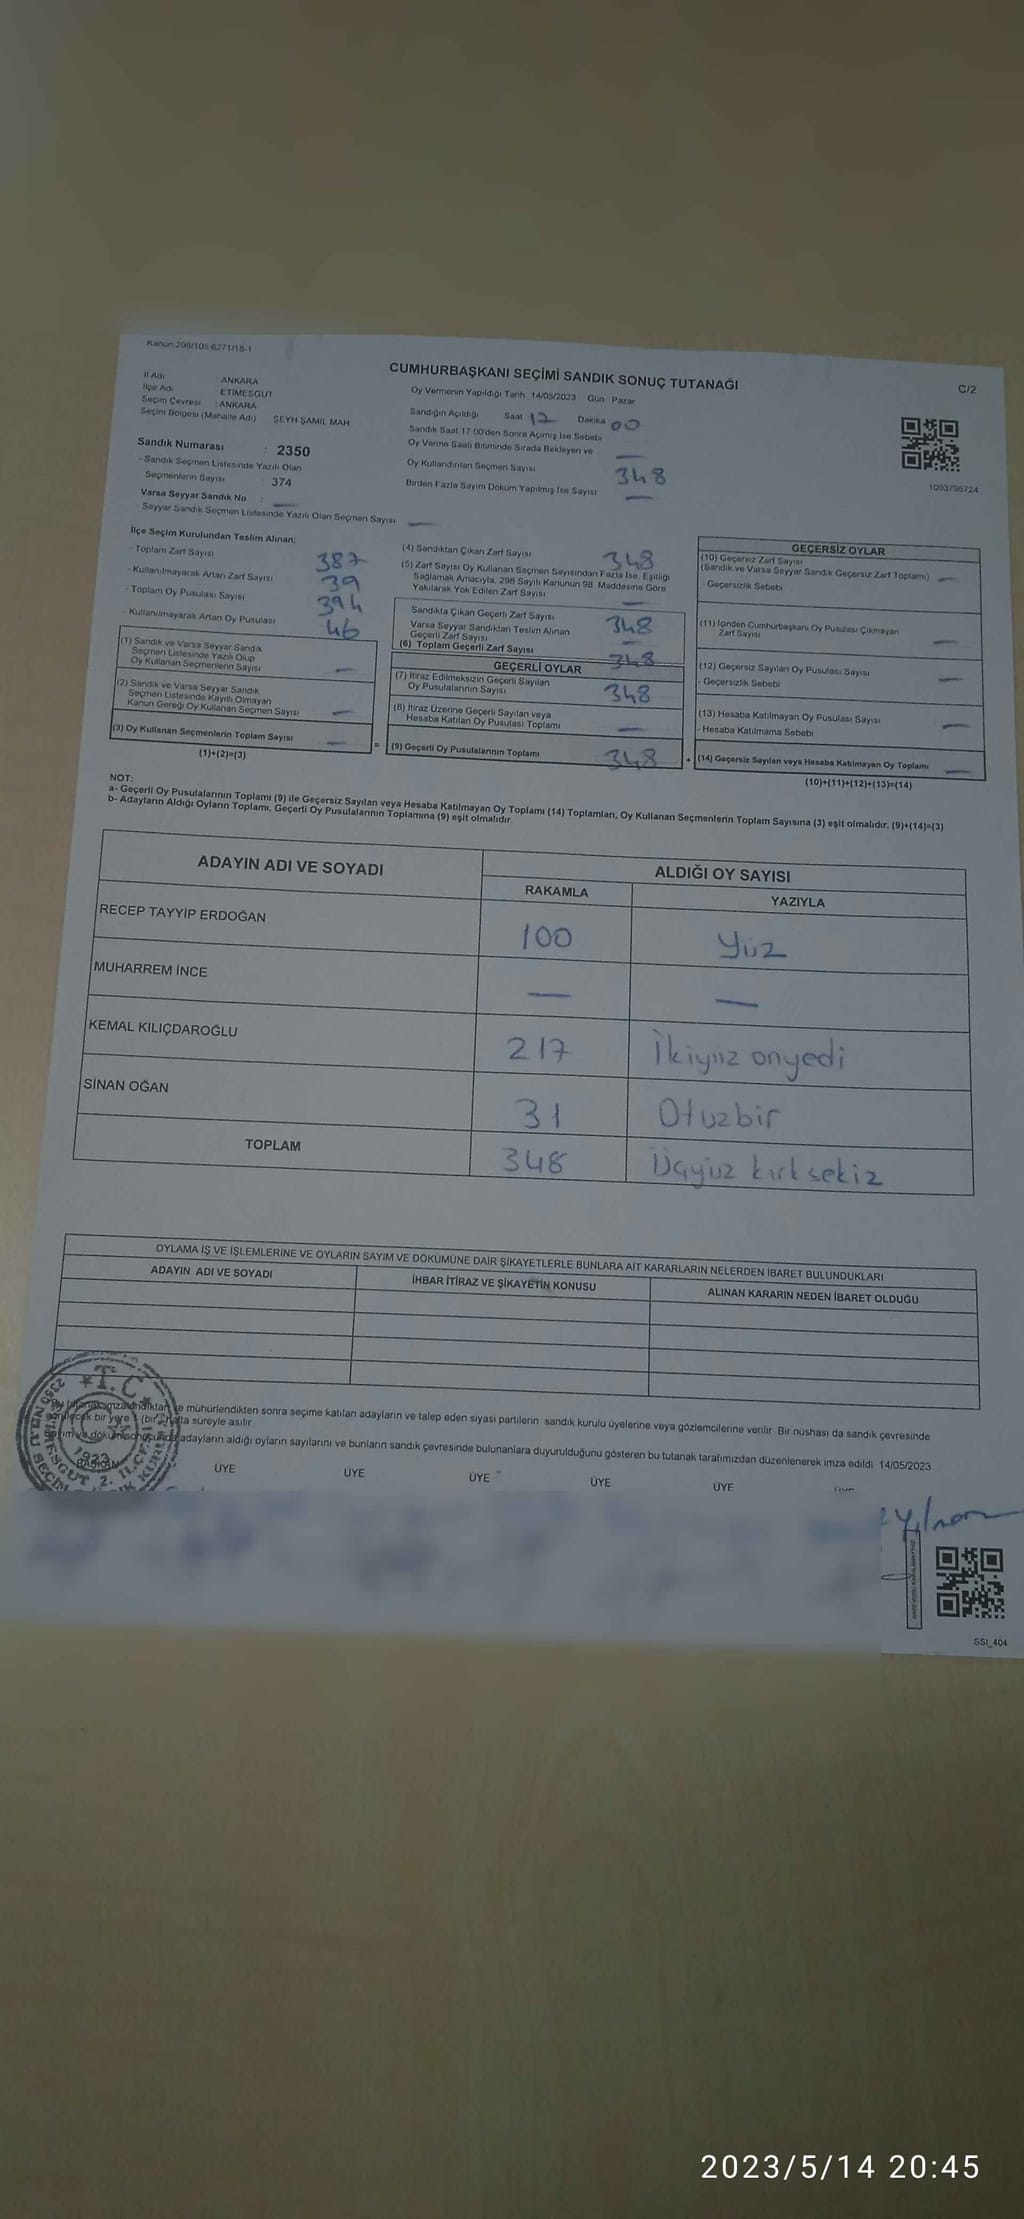 Kanun:298/105 6271/16-1
CUMHURBAŞKANI SEÇİMİ SANDIK SONUÇ TUTANAĞI
C/2
İl Adı : ANKARA
İlçe Adı : ETİMESGUT
Seçim Çevresi : ANKARA
Seçim Bölgesi (Mahalle Adı) ŞEYH ŞAMİL MAH
Oy Vermenin Yapıldığı Tarih 14/05/2023 Gün Pazar
Sandığın Açıldığı Saat 17 Dakika 00
Sandık Saat 17:00'den Sonra Açılmış İse Sebebi
Oy Verme Saati Bitiminde Sırada Bekleyen ve
Oy Kullandırılan Seçmen Sayısı 348
Birden Fazla Sayım Döküm Yapılmış İse Sayısı —
1093796724
Sandık Numarası : 2350
- Sandık Seçmen Listesinde Yazılı Olan
Seçmenlerin Sayısı : 374
Varsa Seyyar Sandık No : —
- Seyyar Sandık Seçmen Listesinde Yazılı Olan Seçmen Sayısı —
İlçe Seçim Kurulundan Teslim Alınan;
- Toplam Zarf Sayısı 387
- Kullanılmayarak Artan Zarf Sayısı 39
- Toplam Oy Pusulası Sayısı 394
- Kullanılmayarak Artan Oy Pusulası 46
(1) Sandık ve Varsa Seyyar Sandık
Seçmen Listesinde Yazılı Olup
Oy Kullanan Seçmenlerin Sayısı —
(2) Sandık ve Varsa Seyyar Sandık
Seçmen Listesinde Kayıtlı Olmayan
Kanun Gereği Oy Kullanan Seçmen Sayısı —
(3) Oy Kullanan Seçmenlerin Toplam Sayısı —
(1)+(2)=(3)
(4) Sandıktan Çıkan Zarf Sayısı 348
(5) Zarf Sayısı Oy Kullanan Seçmen Sayısından Fazla İse, Eşitliği
Sağlamak Amacıyla, 298 Sayılı Kanunun 98. Maddesine Göre
Yakılarak Yok Edilen Zarf Sayısı —
Sandıkta Çıkan Geçerli Zarf Sayısı 348
Varsa Seyyar Sandıktan Teslim Alınan
Geçerli Zarf Sayısı —
(6) Toplam Geçerli Zarf Sayısı 348
GEÇERLİ OYLAR
(7) İtiraz Edilmeksizin Geçerli Sayılan
Oy Pusulalarının Sayısı 348
(8) İtiraz Üzerine Geçerli Sayılan veya
Hesaba Katılan Oy Pusulası Toplamı —
= (9) Geçerli Oy Pusulalarının Toplamı 348
GEÇERSİZ OYLAR
(10) Geçersiz Zarf Sayısı
(Sandık ve Varsa Seyyar Sandık Geçersiz Zarf Toplamı) —
- Geçersizlik Sebebi
(11) İçinden Cumhurbaşkanı Oy Pusulası Çıkmayan
Zarf Sayısı —
(12) Geçersiz Sayılan Oy Pusulası Sayısı —
- Geçersizlik Sebebi
(13) Hesaba Katılmayan Oy Pusulası Sayısı —
- Hesaba Katılmama Sebebi
+ (14) Geçersiz Sayılan veya Hesaba Katılmayan Oy Toplamı —
(10)+(11)+(12)+(13)=(14)
NOT:
a- Geçerli Oy Pusulalarının Toplamı (9) ile Geçersiz Sayılan veya Hesaba Katılmayan Oy Toplamı (14) Toplamları, Oy Kullanan Seçmenlerin Toplam Sayısına (3) eşit olmalıdır. (9)+(14)=(3)
b- Adayların Aldığı Oyların Toplamı, Geçerli Oy Pusulalarının Toplamına (9) eşit olmalıdır.
ADAYIN ADI VE SOYADI ALDIĞI OY SAYISI
RAKAMLA YAZIYLA
RECEP TAYYİP ERDOĞAN 100 Yüz
MUHARREM İNCE — —
KEMAL KILIÇDAROĞLU 217 İkiyüz onyedi
SİNAN OĞAN 31 Otuzbir
TOPLAM 348 Üçyüz kırk sekiz
OYLAMA İŞ VE İŞLEMLERİNE VE OYLARIN SAYIM VE DÖKÜMÜNE DAİR ŞİKAYETLERLE BUNLARA AİT KARARLARIN NELERDEN İBARET BULUNDUKLARI
ADAYIN ADI VE SOYADI İHBAR İTİRAZ VE ŞİKAYETİN KONUSU ALINAN KARARIN NEDEN İBARET OLDUĞU
mühürlendikten sonra seçime katılan adayların ve talep eden siyasi partilerin sandık kurulu üyelerine veya gözlemcilerine verilir. Bir nüshası da sandık çevresinde
bir yere (bir) hafta süreyle asılır
adayların aldığı oyların sayılarını ve bunların sandık çevresinde bulunanlara duyurulduğunu gösteren bu tutanak tarafımızdan düzenlenerek imza edildi. 14/05/2023
BAŞKAN ÜYE ÜYE ÜYE ÜYE ÜYE
T.C.
1923
SSI_404
2023/5/14 20:45